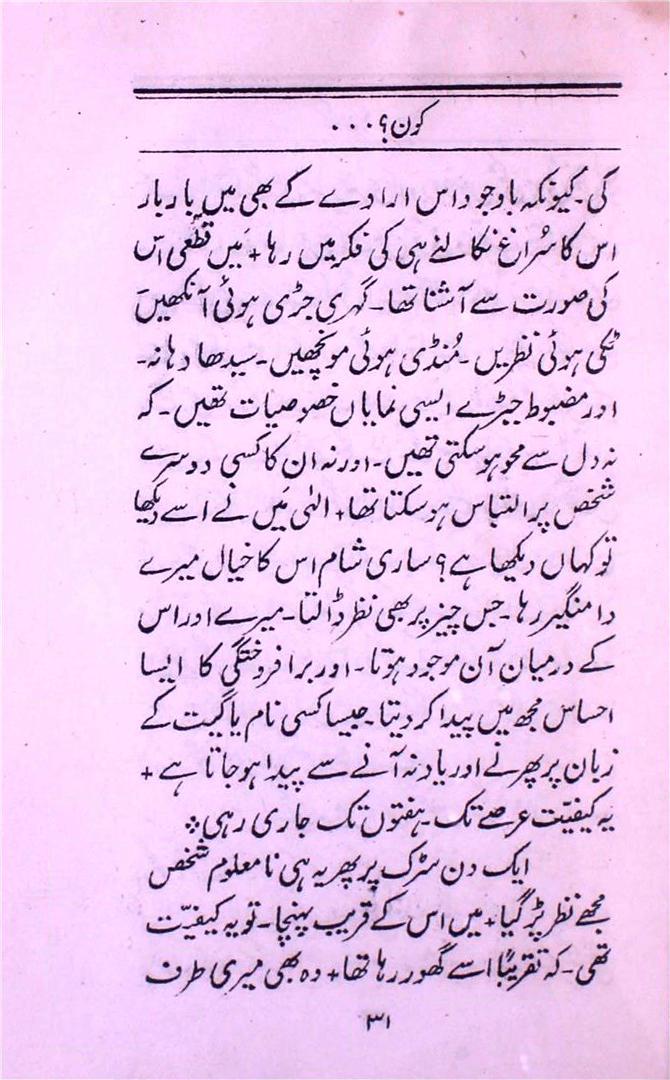 کون؟...
گی۔ کیونکہ باوجود اس ارادے کے بھی میں بار بار
اس کا سُراغ نکالنے ہی کی فکر میں رہا+ مَیں قطعی اس
کی صورت سے آشنا تھا۔ گہری جڑی ہوئی آنکھیں
ٹکی ہوئی نظریں۔ مُنڈی ہوئی مونچھیں۔ سیدھا دہانہ۔
اور مضبوط جبڑے ایسی نمایاں خصوصیات تھیں۔ کہ
نہ دل سے محو ہوسکتی تھیں۔ اور نہ ان کا کسی دوسرے
شخص پر التباس ہوسکتا تھا+ الٰہی مَیں نے اسے دیکھا
تو کہاں دیکھا ہے؟ ساری شام اس کا خیال میرے
دامنگیر رہا۔ جس چیز پر بھی نظر ڈالتا۔ میرے اور اس
کے درمیان آن موجود ہوتا۔ اور برافروختگی کا ایسا
احساس مجھ میں پیدا کر دیتا۔ جیسا کسی نام یا گیت کے
زبان پر پھرنے اور یاد نہ آنے سے پیدا ہوجاتا ہے+
یہ کیفیّت عرصے تک۔ ہفتوں تک جاری رہی⁘
ایک دن سڑک پر پھر یہ ہی نامعلوم شخص
مجھے نظر پڑ گیا+ میں اس کے قریب پہنچا۔ تو یہ کیفیّت
تھی۔ کہ تقریباً اسے گھور رہا تھا+ وہ بھی میری طرف
۳۱